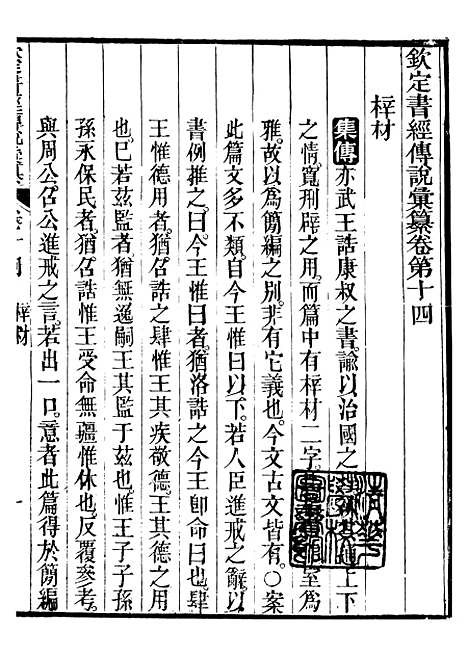 欽定書經傳說彙纂卷第十四
梓材
集傳亦武王誥康叔之書諭以治國之 上下
之情寬刑辟之用而篇中有梓材二字 室爲
雅故以爲簡編之別非有它義也今文古文皆有○案
此篇文多不類自今王惟曰以下若人臣進戒之辭以
書例推之曰今王惟曰者猶洛誥之今王卽命曰也肆
王惟德用者猶召誥之肆惟王其疾敬德王其德之用
也已若茲監者猶無逸嗣王其監于茲也惟王子子孫
孫永保民者猶召誥惟王受命無疆惟休也反覆參考
與周公召公進戒之言若出一口意者此篇得於簡編
梓材